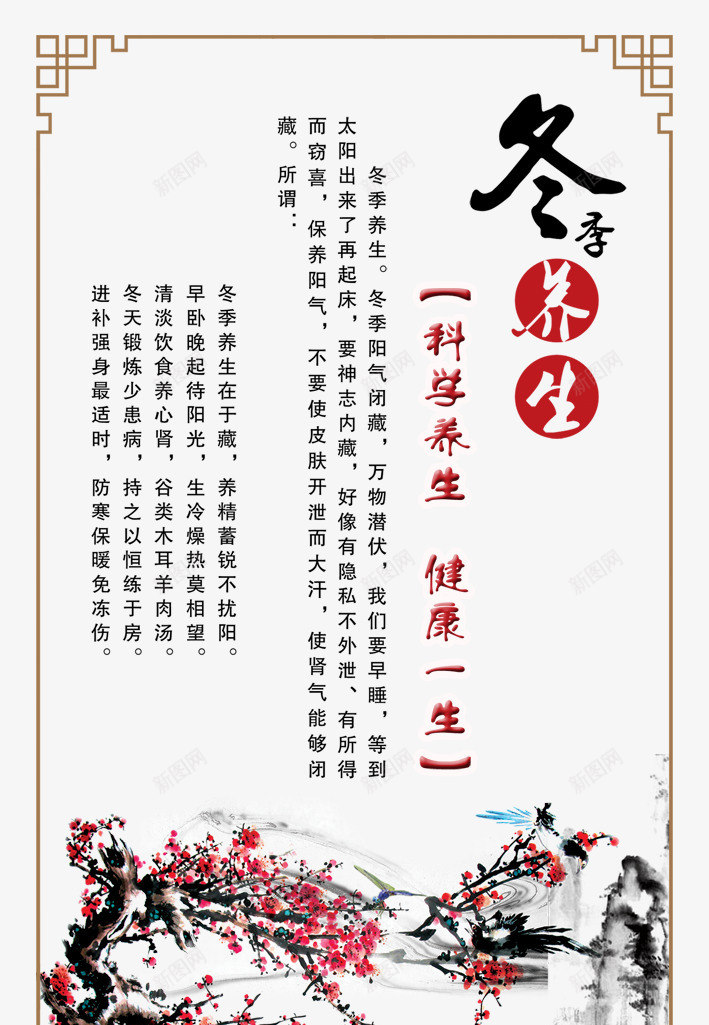 冬季养生
【科学养生 健康一生】
冬季养生。冬季阳气闭藏，万物潜伏，我们要早睡，等到
太阳出来了再起床，要神志内藏，好像有隐私不外泄、有所得
而窃喜，保养阳气，不要使皮肤开泄而大汗，使肾气能够闭
藏。所谓：
冬季养生在于藏，养精蓄锐不扰阳。
早卧晚起待阳光，生冷燥热莫相望。
清淡饮食养心肾，谷类木耳羊肉汤。
冬天锻炼少患病，持之以恒练于房。
进补强身最适时，防寒保暖免冻伤。
新图网